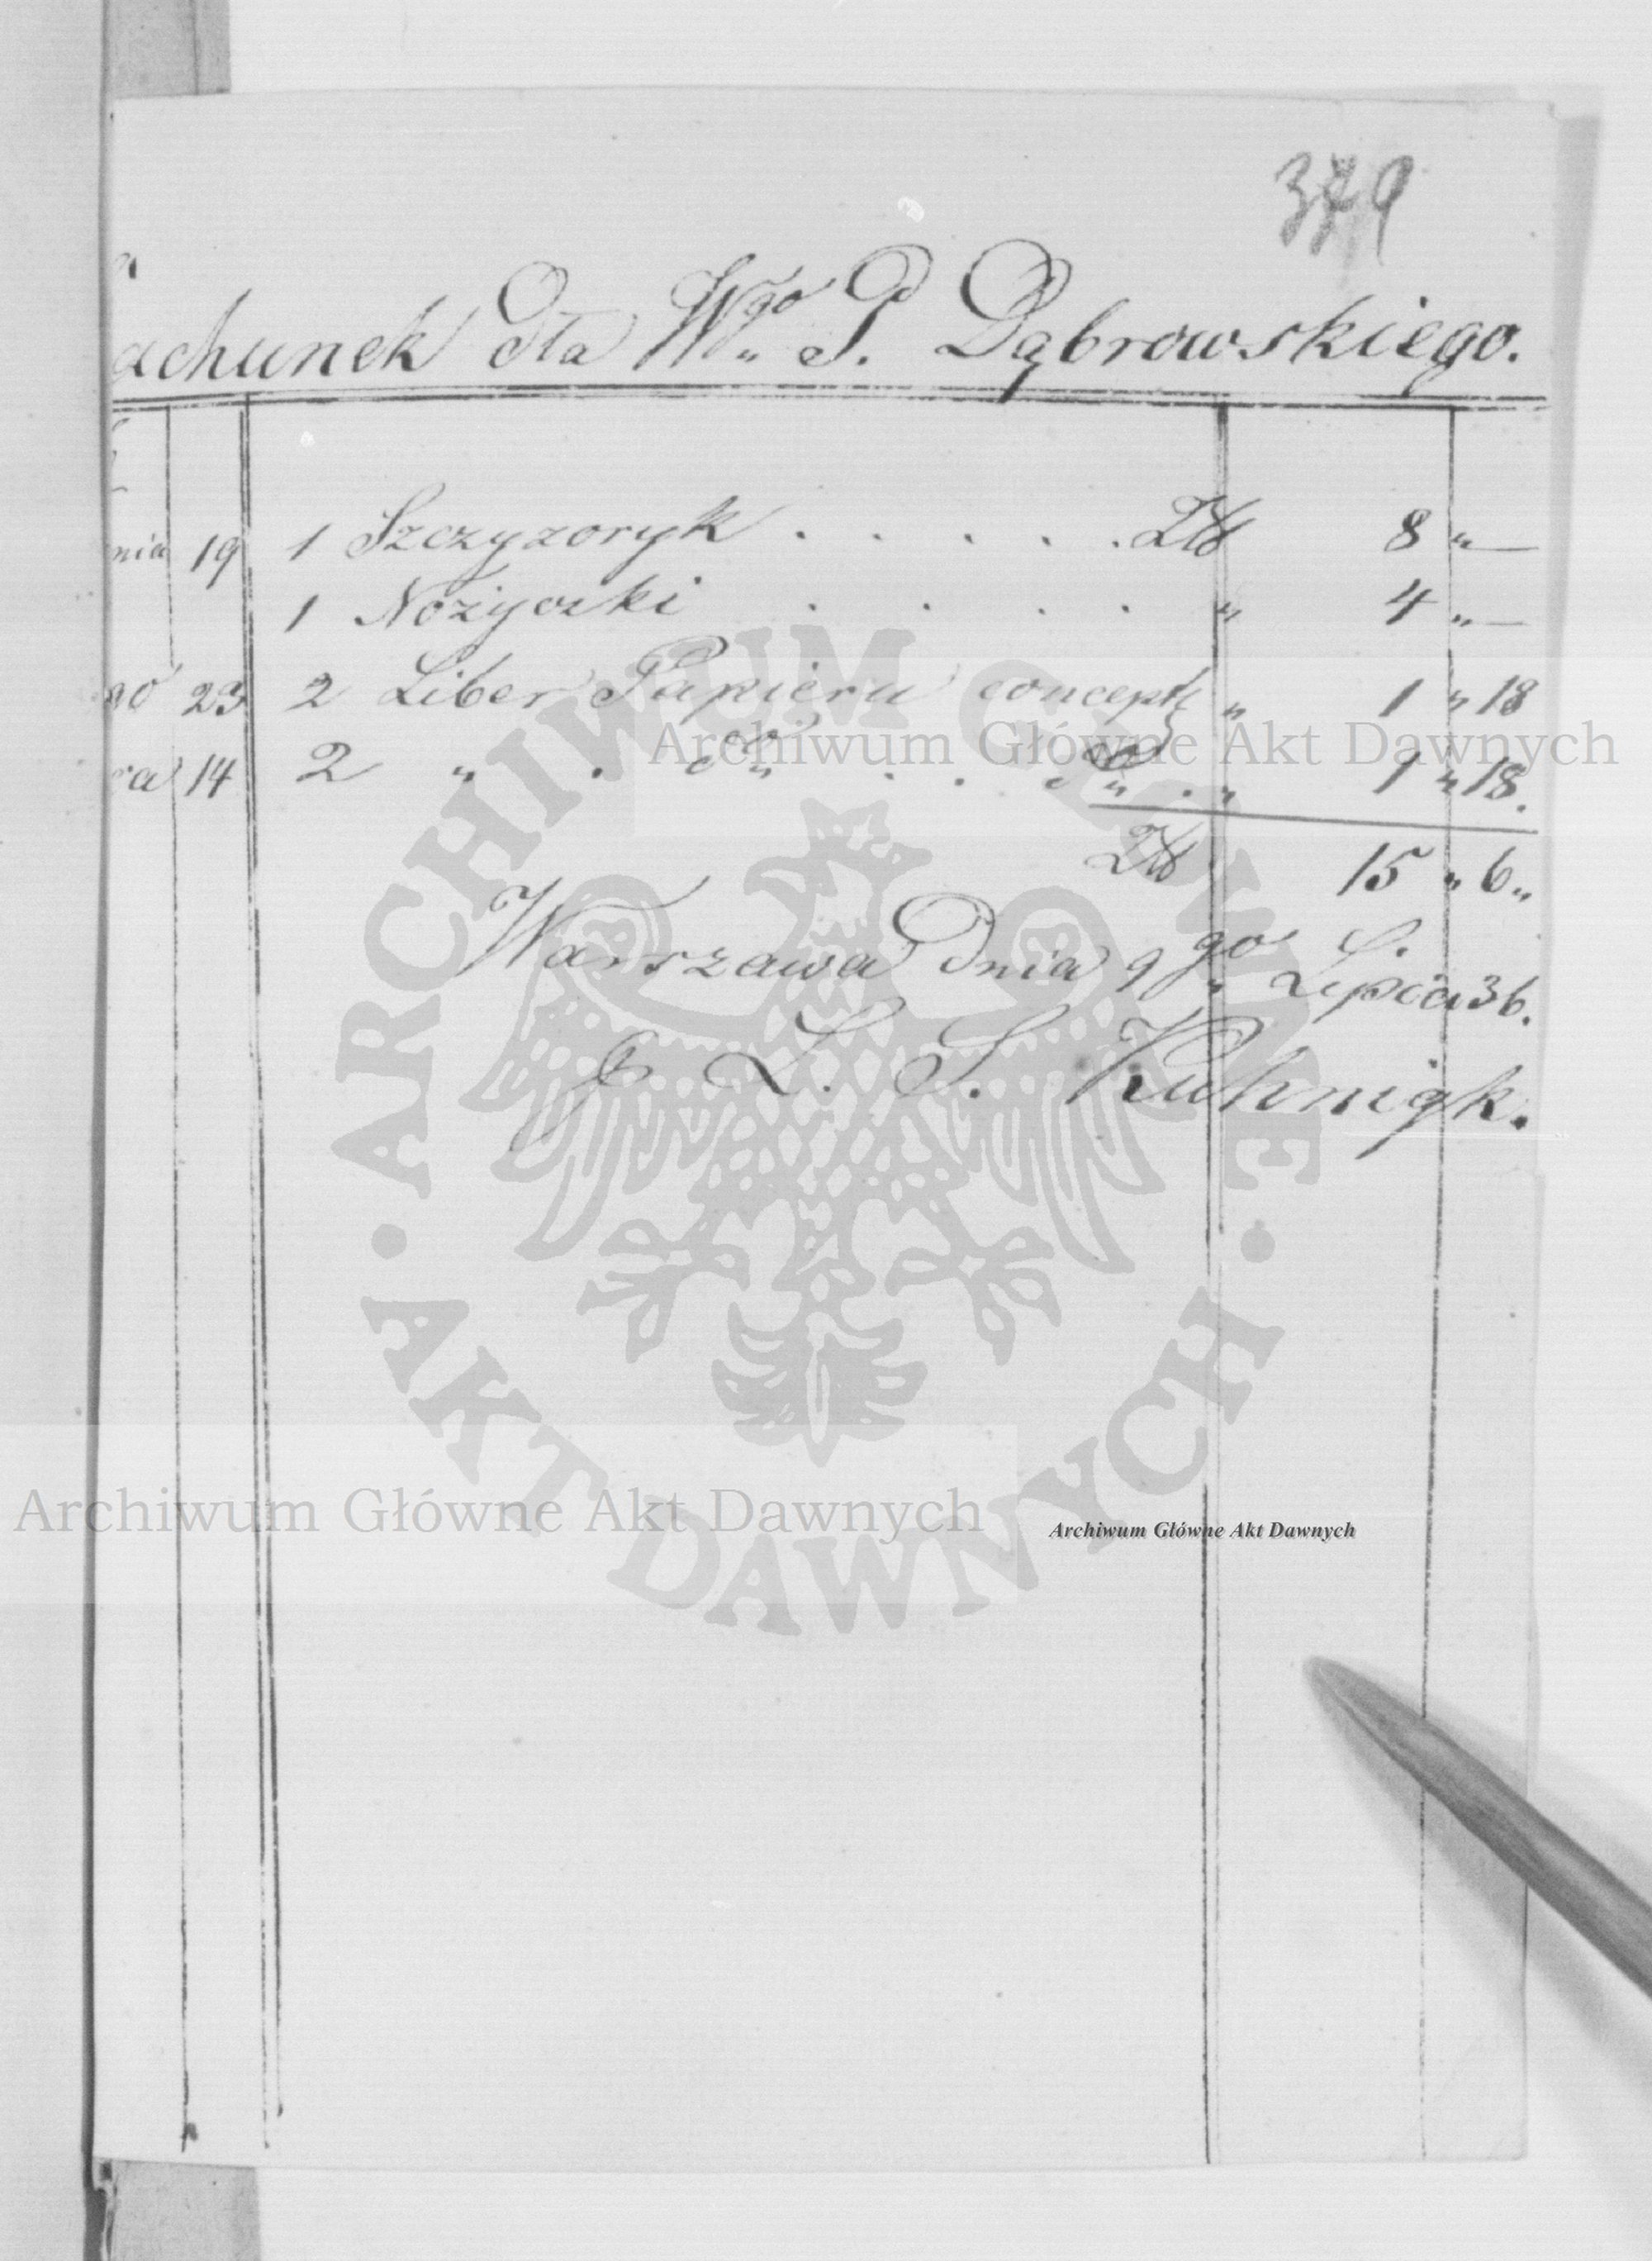 349
achunek dla W.go P. Dąbrowskiego.
nia 19 1 Szczyzoryk . . . . . . Zło 8 „ —
1 Nożyczki . . . . „ 4 „ —
go 23 2 Liber Papieru concept „ 1 „ 18
ca 14 2 „ . do „ . . do „ . „ 1 „ 18.
Zło 15 „ 6 „
Warszawa Dnia 9 go Lipca 36.
L. S. Kuhnigk.
ARCHIWUM GŁÓWNE • AKT DAWNYCH •
Archiwum Główne Akt Dawnych
Archiwum Główne Akt Dawnych
Archiwum Główne Akt Dawnych